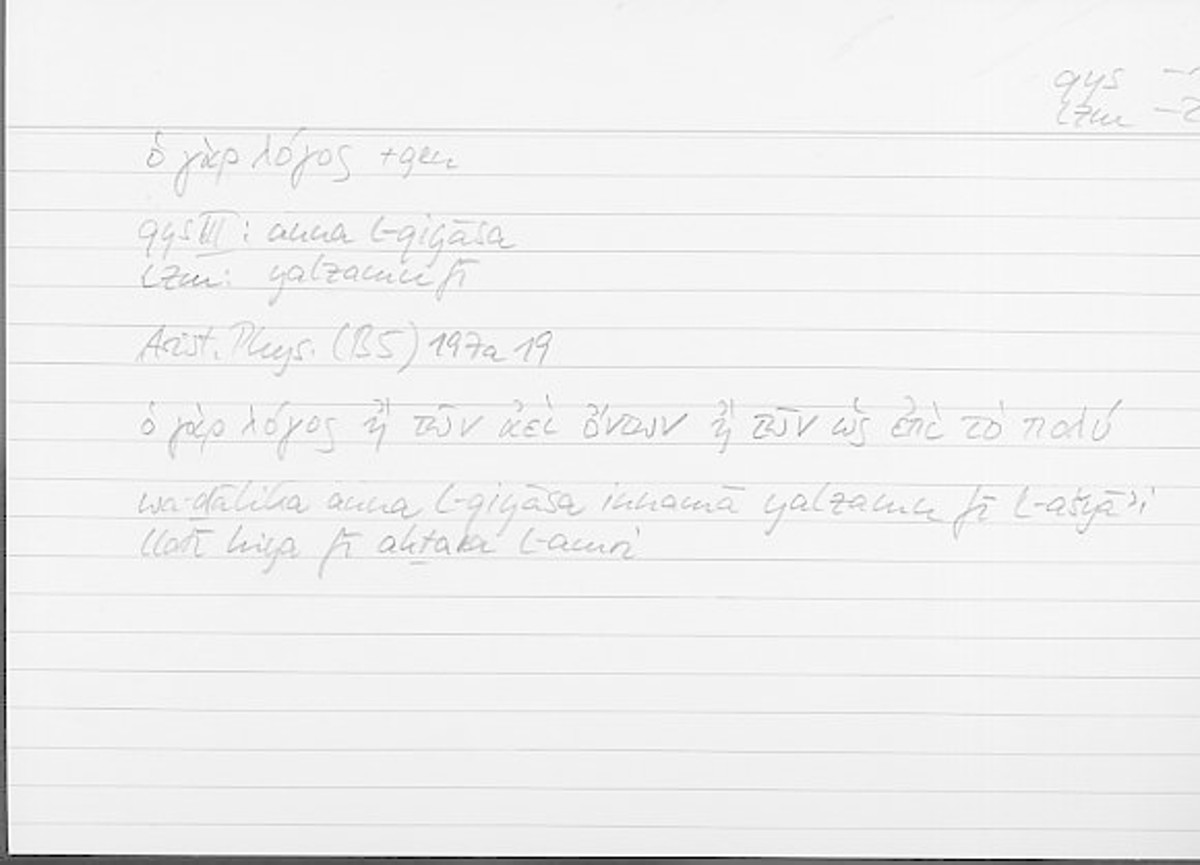 qys
lzm
ὁ γὰρ λόγος +gen
qys III: anna l-qiyāsa
lzm: yalzamu fī
Arist. Phys. (B5) 197a 19
ὁ γὰρ λόγος ἢ τῶν ἀεὶ ὄντων ἢ τῶν ὡς ἐπὶ τὸ πολύ
wa-ḏālika anna l-qiyāsa innamā yalzamu fī l-ašyāʾi
llatī hiya fī akṯari l-amri